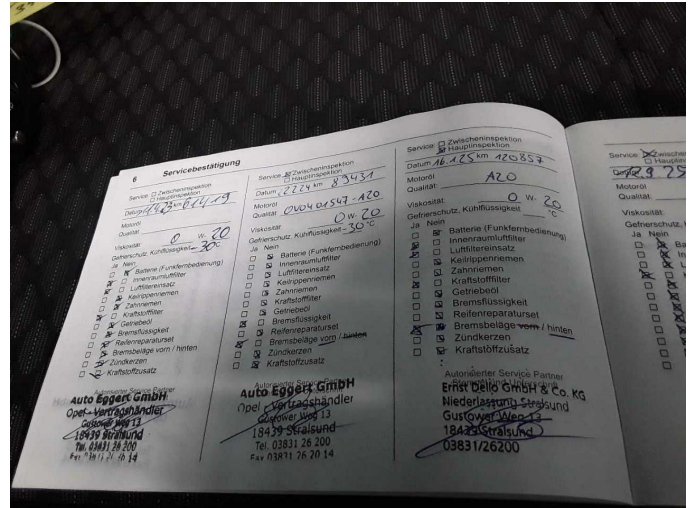 6 Servicebestätigung
Service: □ Zwischeninspektion
□ Hauptinspektion
Datum km 61419
Motoröl
Qualität
Viskosität 0 w- 20
Gefrierschutz, Kühlflüssigkeit - 30 °C
Ja Nein
Batterie (Funkfernbedienung)
Innenraumluftfilter
Luftfiltereinsatz
Keilrippenriemen
Zahnriemen
Kraftstofffilter
Getriebeöl
Bremsflüssigkeit
Reifenreparaturset
Bremsbeläge vorn / hinten
Zündkerzen
Kraftstoffzusatz
Autorisierter Service Partner
Auto Eggert GmbH
Opel - Vertragshändler
Gustower Weg 13
18439 Stralsund
Tel. 03831 26 200
Service: Zwischeninspektion
□ Hauptinspektion
Datum 2224 km 83431
Motoröl
Qualität OV0401547-A20
Viskosität 0 w- 20
Gefrierschutz, Kühlflüssigkeit - 30 °C
Ja Nein
Batterie (Funkfernbedienung)
Innenraumluftfilter
Luftfiltereinsatz
Keilrippenriemen
Zahnriemen
Kraftstofffilter
Getriebeöl
Bremsflüssigkeit
Reifenreparaturset
Bremsbeläge vorn / hinten
Zündkerzen
Kraftstoffzusatz
Autorisierter Service Partner
Auto Eggert GmbH
Opel - Vertragshändler
Gustower Weg 13
18439 Stralsund
Tel. 03831 26 200
Fax 03831 26 20 14
Service: □ Zwischeninspektion
Hauptinspektion
Datum 16.1.25 km 120857
Motoröl
Qualität: A20
Viskosität: 0 w- 20
Gefrierschutz, Kühlflüssigkeit °C
Ja Nein
Batterie (Funkfernbedienung)
Innenraumluftfilter
Luftfiltereinsatz
Keilrippenriemen
Zahnriemen
Kraftstofffilter
Getriebeöl
Bremsflüssigkeit
Reifenreparaturset
Bremsbeläge vorn / hinten
Zündkerzen
Kraftstoffzusatz
Autorisierter Service Partner
Ernst Dello GmbH & Co. KG
Niederlassung Stralsund
Gustower Weg 13
18439 Stralsund
03831/26200
Service:
Motoröl
Qualität:
Viskosität:
Ja Nein